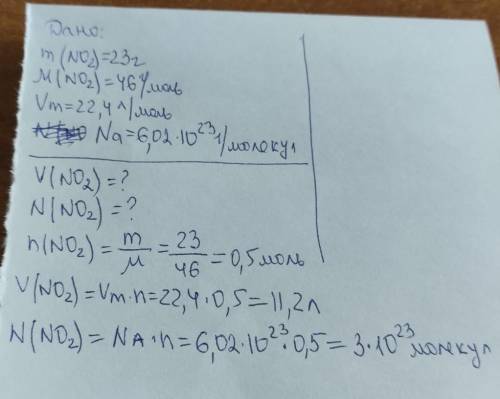 Дано:
m(NO₂)=23г
M(NO₂)=46г/моль
Vm=22,4л/моль
Na=6,02·10²³1/молекул
V(NO₂)=?
N(NO₂)=?
n(NO₂)=m/M=23/46=0,5моль
V(NO₂)=Vm·n=22,4·0,5=11,2л
N(NO₂)=NA·n=6,02·10²³·0,5=3·10²³молекул